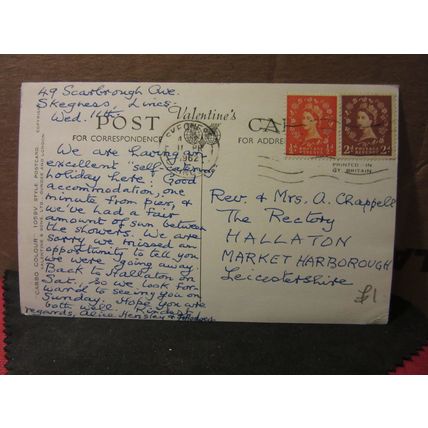 49 Scarbrough Ave.
Skegness, Lincs.
Wed. 11th.
Valentine's
POST CARD
FOR CORRESPONDENCE
FOR ADDRESS
We are having an
excellent "self-catering"
holiday here. Good
accommodation, one
minute from pier, &
we've had a fair
amount of sun between
the showers. We are
sorry we missed an
opportunity to tell you
we were going away.
Back to Hallaton on
Sat., so we look for-
ward to seeing you on
Sunday. Hope you are
both well. Kindest
regards, Alice Hensley &
Rev. & Mrs. A. Chappell
The Rectory
HALLATON
MARKET HARBOROUGH
Leicestershire
PRINTED IN
GT BRITAIN
CARBO COLOUR
POSTCARD
½d
2d
1962
£1